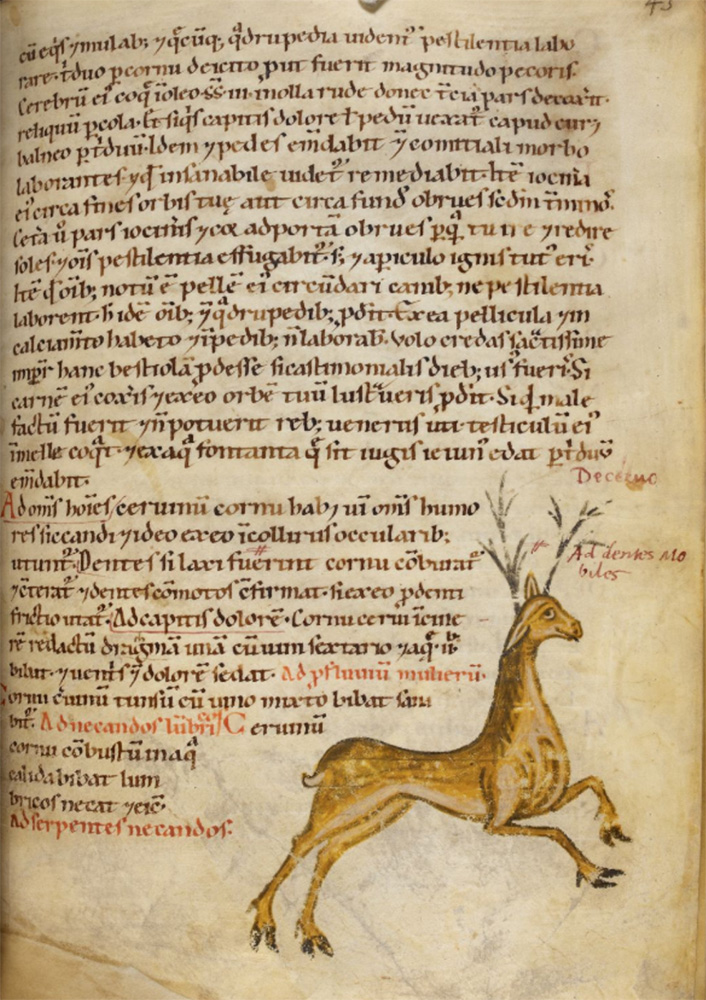 43
cū eq̄s ⁊ mulab; ⁊ q̄cūq; q̄drupedia uident̄ pestilentia labo
rare· t̄duo p cornu deicito put fuerit magnitudo pecoris·
Cerebrū ei' coq̄ ī oleo
in olla rude donec t̄cia pars decoxit·
reliquū p cola· Et siq̄s capitis dolore ł pedū uexat̄ capud cur⁊
balneo p t̄duū· Idem ⁊ pedes em̄dabit ⁊ comitiali morbo
laborantes ⁊ q̄ insanabile uidet̄ remediabit· Itē iocin̄a
ei' circa fines orbis tuę aut circa fund' obrues
Cet̄a ū pars iocin̄is ⁊
ad portā obrues
⁊ redire
soles· ⁊ om̄s pestilentia effugabit̄· s; ⁊ a piculo ignis tut' eri·
Itē q̄ oib; notū ē pellē ei' circūdari canib; ne pestilentia
laborent· h idē oib; ⁊ q̄drupedib; pdit· Ex ea pellicula ⁊ in
calciam̄to habeto ⁊ ī pedib; n̄ laborab· Volo credas sāctissime
īmp̄r hanc bestiolā pdesse sicas timonialis dieb; us' fueri· Si
carnē ei' coxis ⁊ ex eo orbē tuū lust̄ueris pdit· Si q̄ male
factū fuerit ⁊ n̄ potuerit reb; ueneriis uti· testiculū ei'
ī melle coq̄t· ⁊ ex aq̄ fontana q̄ sit iugis ieiun' edat p t̄duū
em̄dabit·
De ceruo
Ad om̄s hōies ceruinū cornu hab⁊ uī om̄s humo
res siccandi ⁊ ideo ex eo ī collirus occularib;
utunt̄· Dentes si laxi fuerint cornu cōburat̄
Ad dentes mo
biles
⁊ t̄erat̄ ⁊ dentes cōmotos cfirmat· si ex eo p denti
fricio utat̄· Ad capitis dolorē· Cornu cerui ī cine
rē redactū dragmā unā cū uini sextario ⁊ aq̄·
bibat· ⁊ uent̄s ⁊ dolorē sedat· Ad pfluuiū mulierū·
Cornu c̄uinū tunsū cū uino mixto bibat sana
bit̄· Ad necandos lūb̄r Ceruinū
cornu cōbustū in aq̄
calida bibat lum
bricos necat ⁊ eic̄·
Ad serpentes necandos·